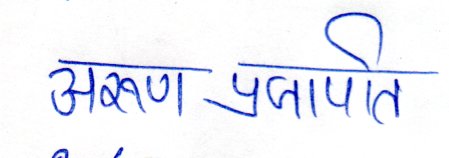 अरूण प्रजापति